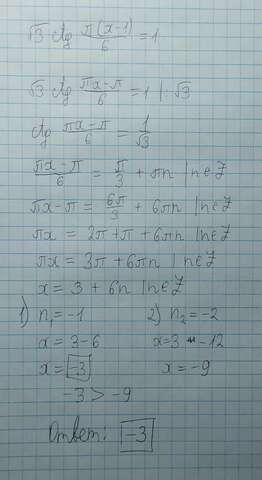 √3 ctg π(x-1)/6 = 1
√3 ctg πx-π/6 = 1 | :√3
ctg πx-π/6 = 1/√3
πx-π/6 = π/3 + πn | n∈Z
πx-π = 6π/3 + 6πn | n∈Z
πx = 2π+π + 6πn | n∈Z
πx = 3π + 6πn | n∈Z
x = 3 + 6n | n∈Z
1) n₁ = -1 2) n₂ = -2
x = 3-6 x = 3 -12
x = -3 x = -9
-3 > -9
Ответ: -3